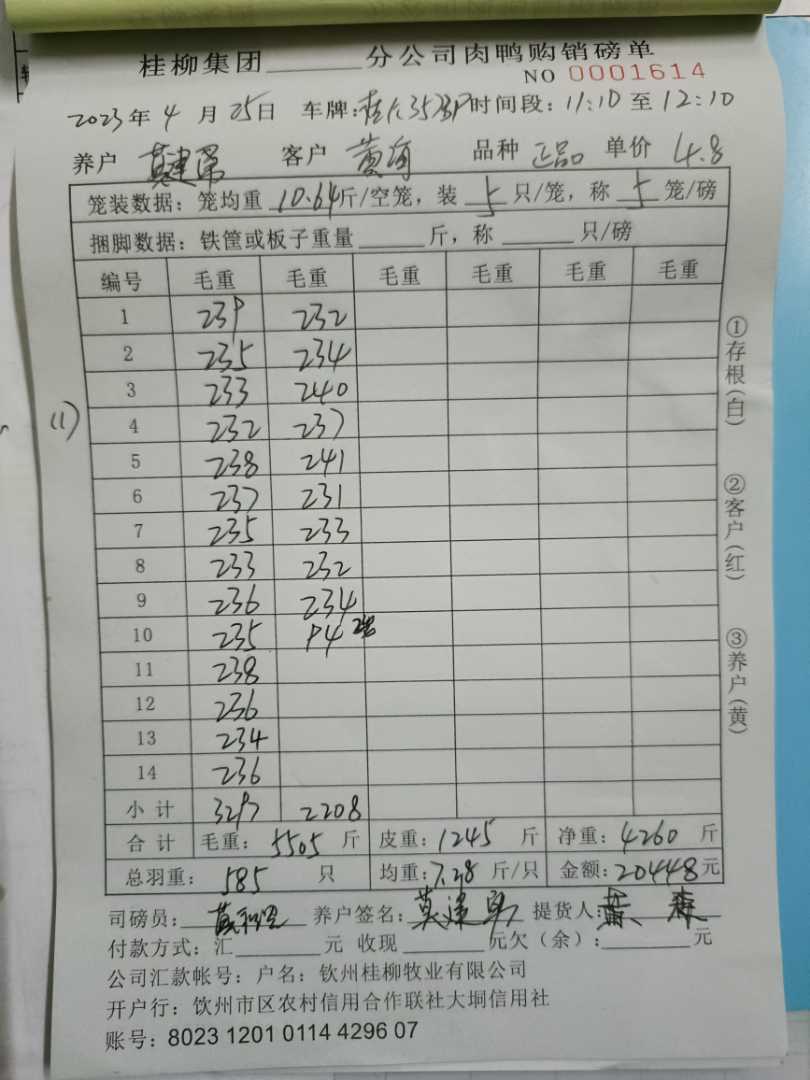 桂柳集团______分公司肉鸭购销磅单
NO 0001614
2023年 4 月 25日 车牌: 时间段: 11:10 至 12:10
养户 莫建 客户 黄 品种 正品 单价 4.8
笼装数据: 笼均重 10.64斤/空笼, 装 5 只/笼, 称 5 笼/磅
捆脚数据: 铁筐或板子重量______斤, 称______只/磅
编号 毛重 毛重 毛重 毛重 毛重 毛重
1 239 232
2 235 234
3 233 240
4 232 237
5 238 241
6 237 231
7 235 233
8 233 232
9 236 234
10 235 94 2笼
11 238
12 236
13 234
14 236
小 计 3297 2208
合 计 毛重: 5505 斤 皮重: 1245 斤 净重: 4260 斤
总羽重: 585 只 均重: 7.28 斤/只 金额: 20448元
司磅员: 养户签名: 莫建 提货人:
付款方式: 汇______元 收现______元欠(余):______元
公司汇款帐号: 户名: 钦州桂柳牧业有限公司
开户行: 钦州市区农村信用合作联社大垌信用社
账号: 8023 1201 0114 4296 07
(1)
①存根(白)
②客户(红)
③养户(黄)